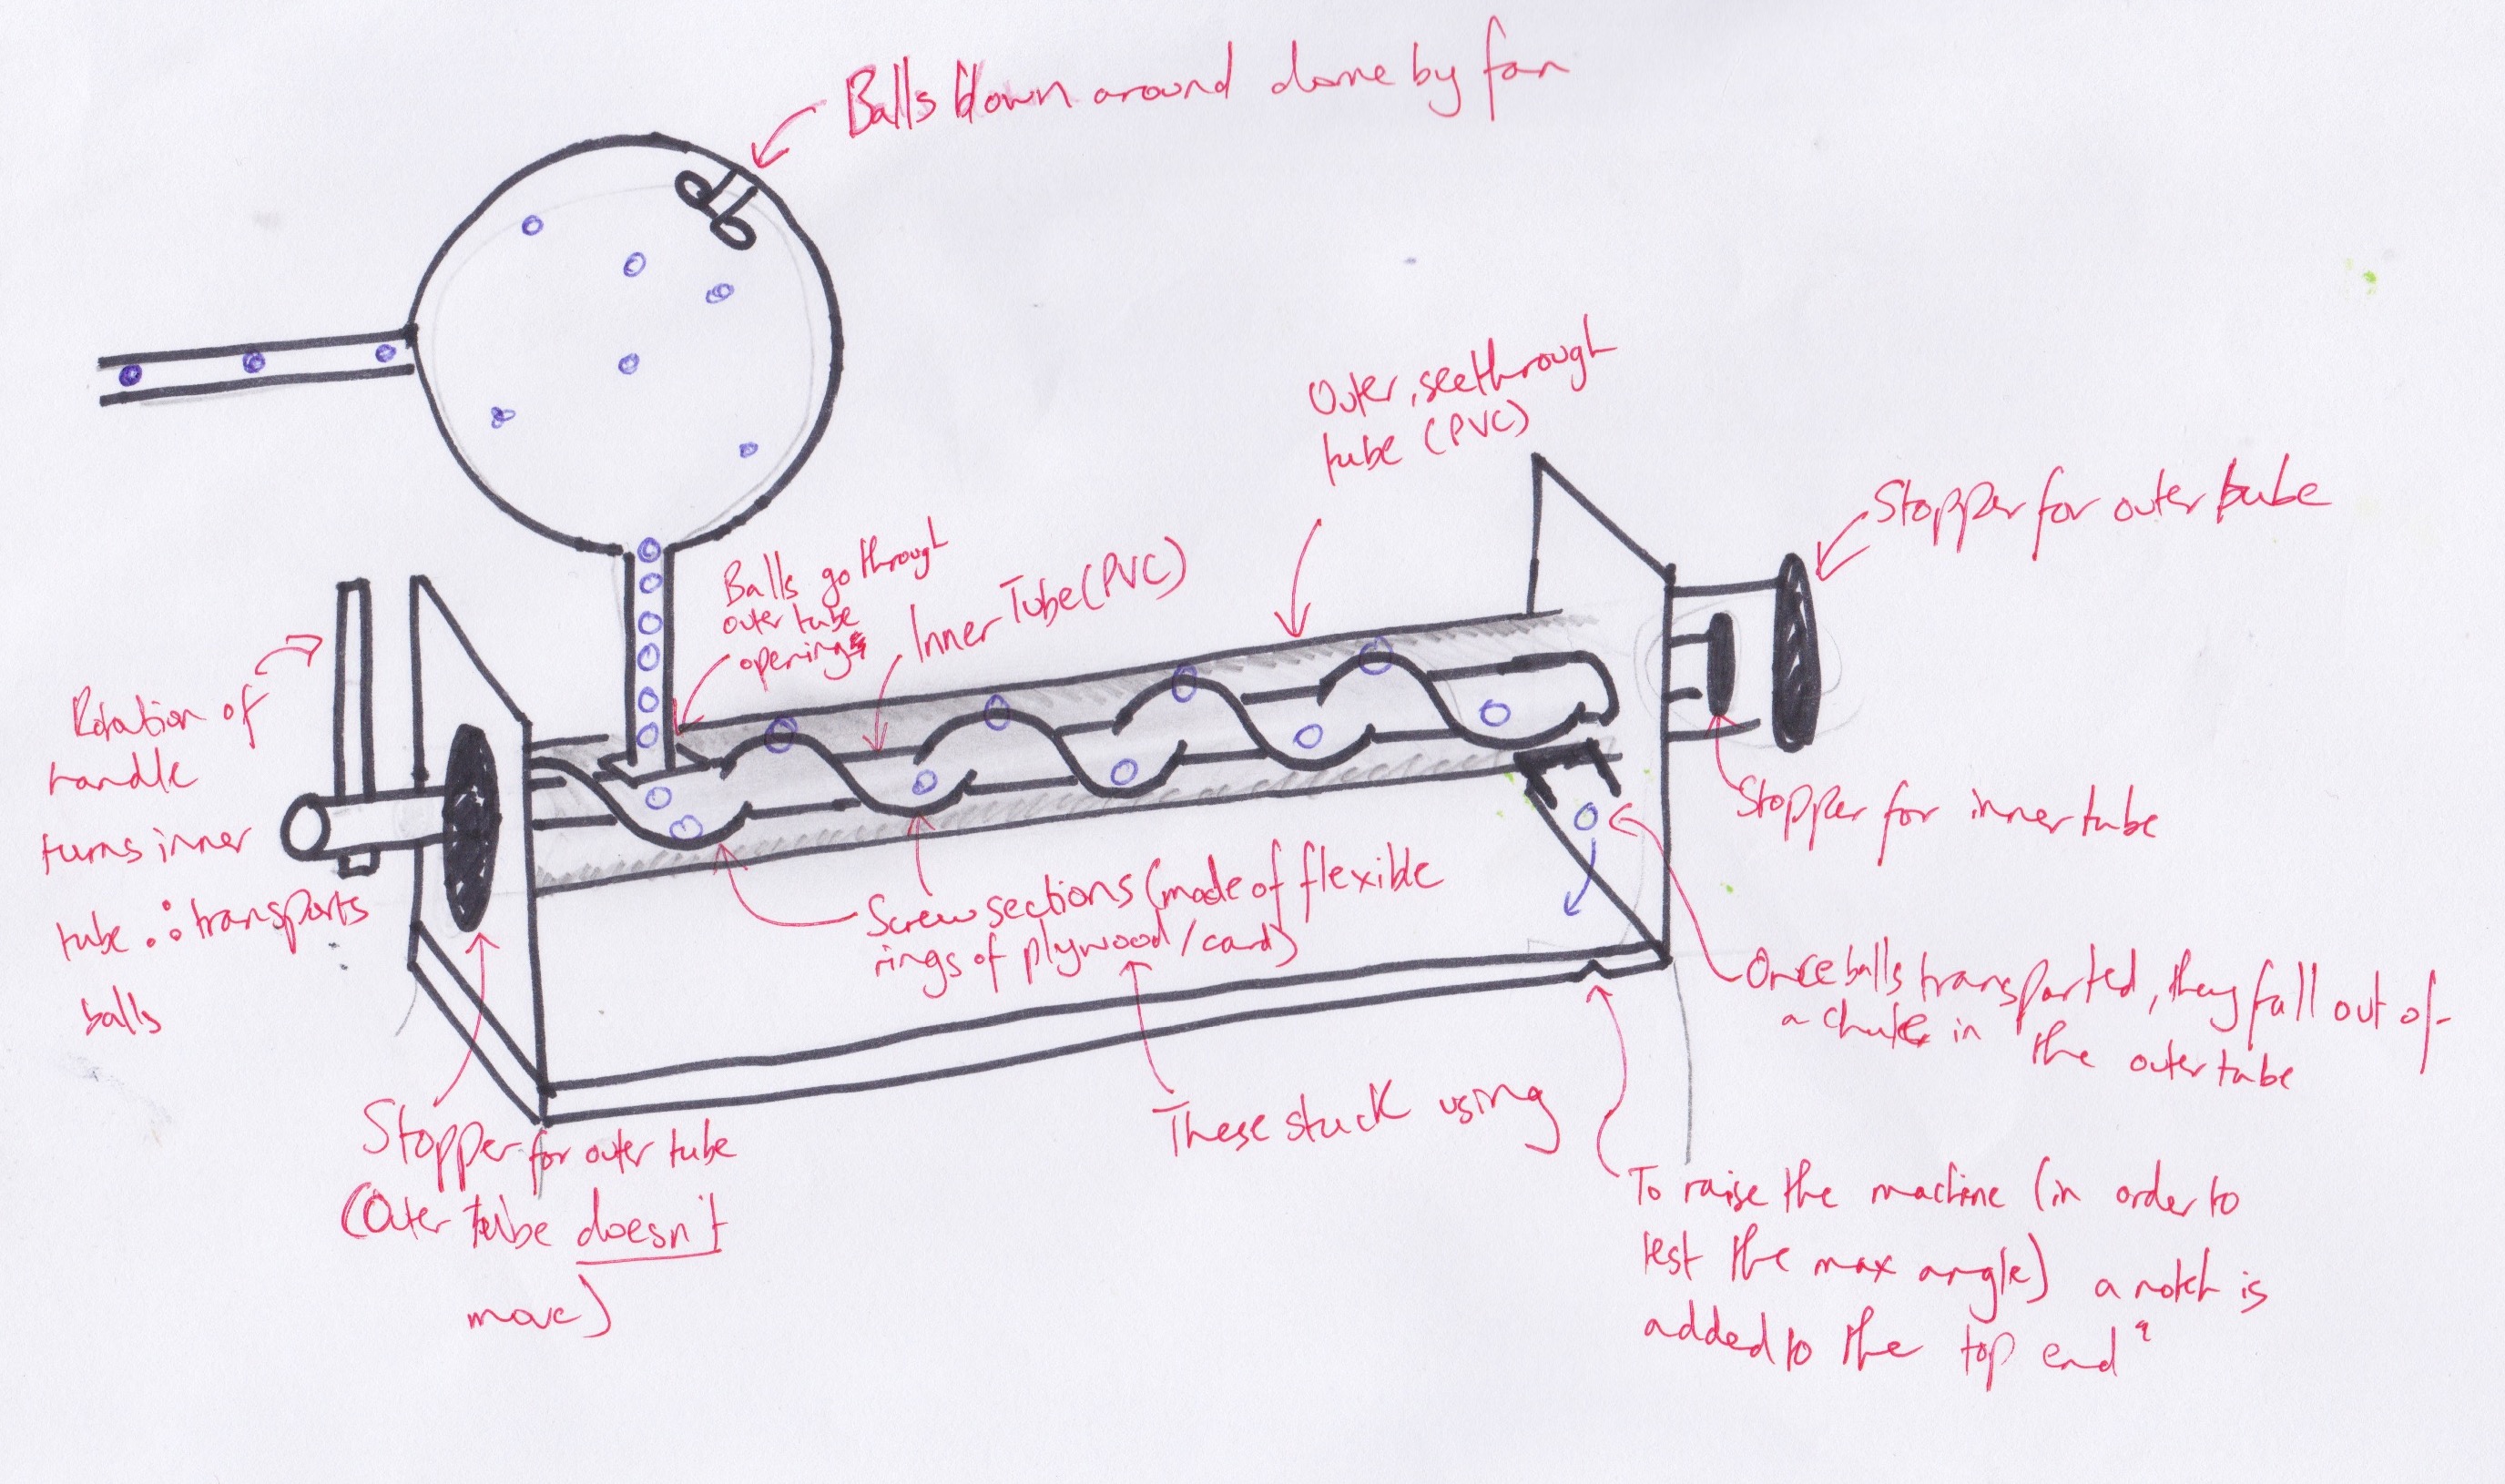 Balls blown around dome by fan
Outer, seethrough
tube (PVC)
Stopper for outer tube
Balls go through
outer tube
opening
Inner Tube (PVC)
Rotation of
handle
turns inner
tube ∴ transports
balls
Stopper for inner tube
Screw sections (made of flexible
rings of plywood/card)
Once balls transported, they fall out of
a chute in the outer tube
These stuck using
Stopper for outer tube
(Outer tube doesn't
move)
To raise the machine (in order to
test the max angle) a notch is
added to the top end